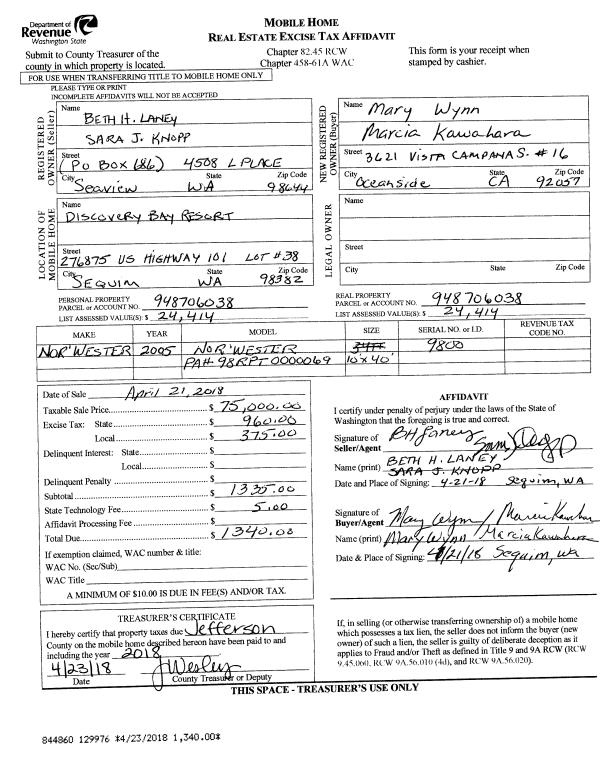 Department of
Revenue
Washington State
MOBILE HOME
REAL ESTATE EXCISE TAX AFFIDAVIT
Submit to County Treasurer of the
county in which property is located.
Chapter 82.45 RCW
Chapter 458-61A WAC
This form is your receipt when
stamped by cashier.
FOR USE WHEN TRANSFERRING TITLE TO MOBILE HOME ONLY
PLEASE TYPE OR PRINT
INCOMPLETE AFFIDAVITS WILL NOT BE ACCEPTED
REGISTERED OWNER (Seller)
Name
BETH H. LANEY
SARA J. KNOPP
Street
(PO BOX 686) 4508 L PLACE
City State Zip Code
SEAVIEW WA 98644
NEW REGISTERED OWNER (Buyer)
Name Mary Wynn
Marcia Kawahara
Street 3621 VISTA CAMPANA S. #16
City State Zip Code
Oceanside CA 92057
LOCATION OF MOBILE HOME
Name
DISCOVERY BAY RESORT
Street
276875 US HIGHWAY 101 LOT #38
City State Zip Code
SEQUIM WA 98382
LEGAL OWNER
Name
Street
City State Zip Code
PERSONAL PROPERTY
PARCEL or ACCOUNT NO. 948706038
LIST ASSESSED VALUE(S): $ 24,414
REAL PROPERTY
PARCEL or ACCOUNT NO. 948706038
LIST ASSESSED VALUE(S): $ 24,414
MAKE YEAR MODEL SIZE SERIAL NO. or I.D. REVENUE TAX CODE NO.
NOR'WESTER 2005 NOR'WESTER 9800
PA# 98RPT0000069 10'x40'
Date of Sale April 21, 2018
Taxable Sale Price $ 75,000.00
Excise Tax: State $ 960.00
Local $ 375.00
Delinquent Interest: State $
Local $
Delinquent Penalty $
Subtotal $ 1335.00
State Technology Fee $ 5.00
Affidavit Processing Fee $
Total Due $ 1340.00
If exemption claimed, WAC number & title:
WAC No. (Sec/Sub)
WAC Title
A MINIMUM OF $10.00 IS DUE IN FEE(S) AND/OR TAX.
AFFIDAVIT
I certify under penalty of perjury under the laws of the State of
Washington that the foregoing is true and correct.
Signature of
Seller/Agent BH Laney
Name (print) BETH H. LANEY
SARA J. KNOPP
Date and Place of Signing: 4-21-18 Sequim, WA
Signature of
Buyer/Agent Mary Wynn / Marcia Kawahara
Name (print) Mary Wynn / Marcia Kawahara
Date & Place of Signing: 4/21/18 Sequim, WA
TREASURER'S CERTIFICATE
I hereby certify that property taxes due Jefferson
County on the mobile home described hereon have been paid to and
including the year 2018
4/23/18 JWesley
Date County Treasurer or Deputy
If, in selling (or otherwise transferring ownership of) a mobile home
which possesses a tax lien, the seller does not inform the buyer (new
owner) of such a lien, the seller is guilty of deliberate deception as it
applies to Fraud and/or Theft as defined in Title 9 and 9A RCW (RCW
9.45.060, RCW 9A.56.010 (4d), and RCW 9A.56.020).
THIS SPACE - TREASURER'S USE ONLY
844860 129976 *4/23/2018 1,340.00*